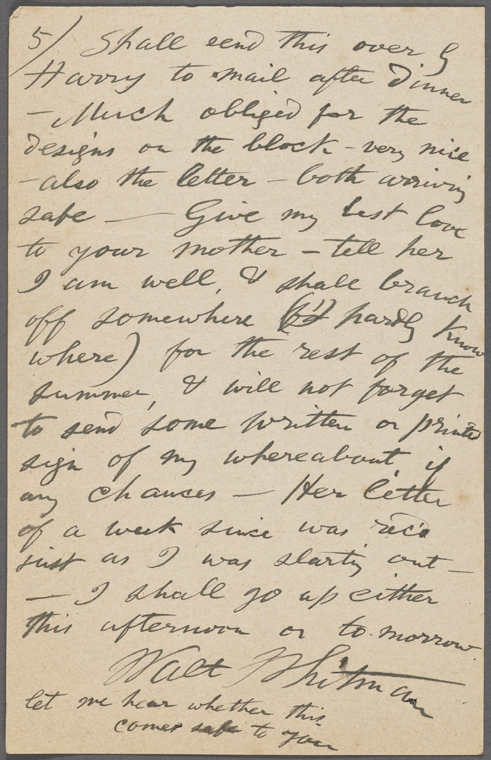 5/ Shall send this over by
Harry to mail after dinner
- Much obliged for the
designs on the block - very nice
- also the letter - both arriving
safe — Give my best love
to your mother - tell her
I am well, & shall branch
off somewhere (I hardly know
where) for the rest of the
summer, & will not forget
to send some written or printed
sign of my whereabout, if
any chances — Her letter
of a week since was rec'd
just as I was starting out —
— I shall go up either
this afternoon or to-morrow.
Walt Whitman
let me hear whether this
comes safe to you